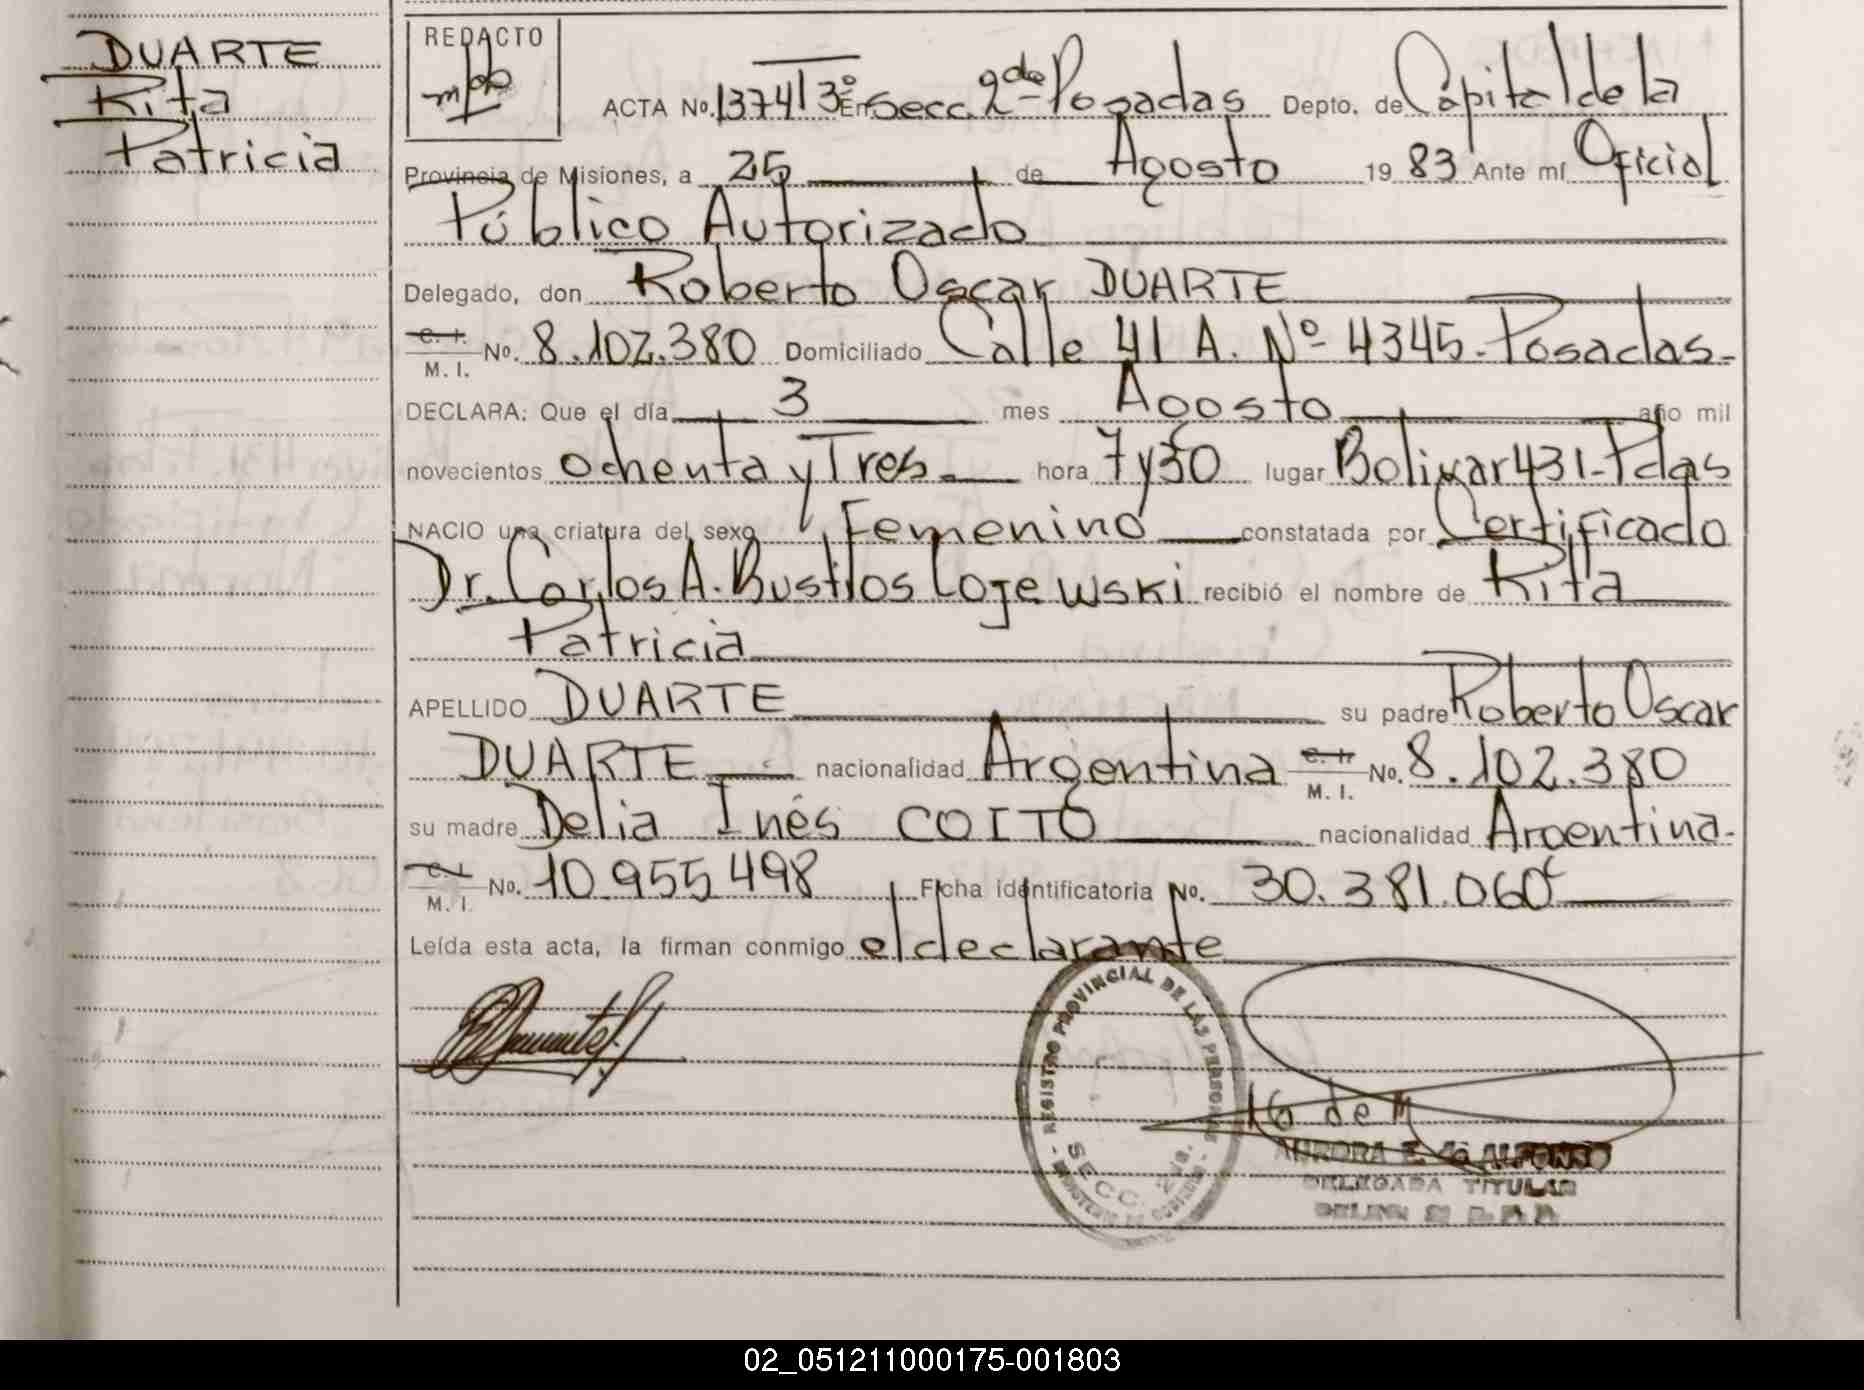 DUARTE
Rita
Patricia
REDACTO
ACTA No. 1374 T 3º En Secc. 2da Posadas Depto. de Capital de la
Provincia de Misiones, a 25 de Agosto 19 83 Ante mí Oficial
Público Autorizado
Delegado, don Roberto Oscar DUARTE
C. I.
M. I. No. 8.102.380 Domiciliado Calle 41 A. Nº 4345-Posadas-
DECLARA: Que el día 3 mes Agosto año mil
novecientos ochenta y Tres hora 7 y 30 lugar Bolivar 431-Pdas
NACIO una criatura del sexo Femenino constatada por Certificado
Dr. Carlos A. Bustilos Lojewski recibió el nombre de Rita
Patricia
APELLIDO DUARTE su padre Roberto Oscar
DUARTE nacionalidad Argentina C. I. No. 8.102.380
M. I.
su madre Delia Inés COITO nacionalidad Argentina.
C. I.
M. I. No. 10.955.498 Ficha identificatoria No. 30.381.060
Leída esta acta, la firman conmigo el declarante
REGISTRO PROVINCIAL DE LAS PERSONAS
SECC. 2da.
MINISTERIO DE GOBIERNO
AURORA E. de ALFONSO
DELEGADA TITULAR
02_051211000175-001803